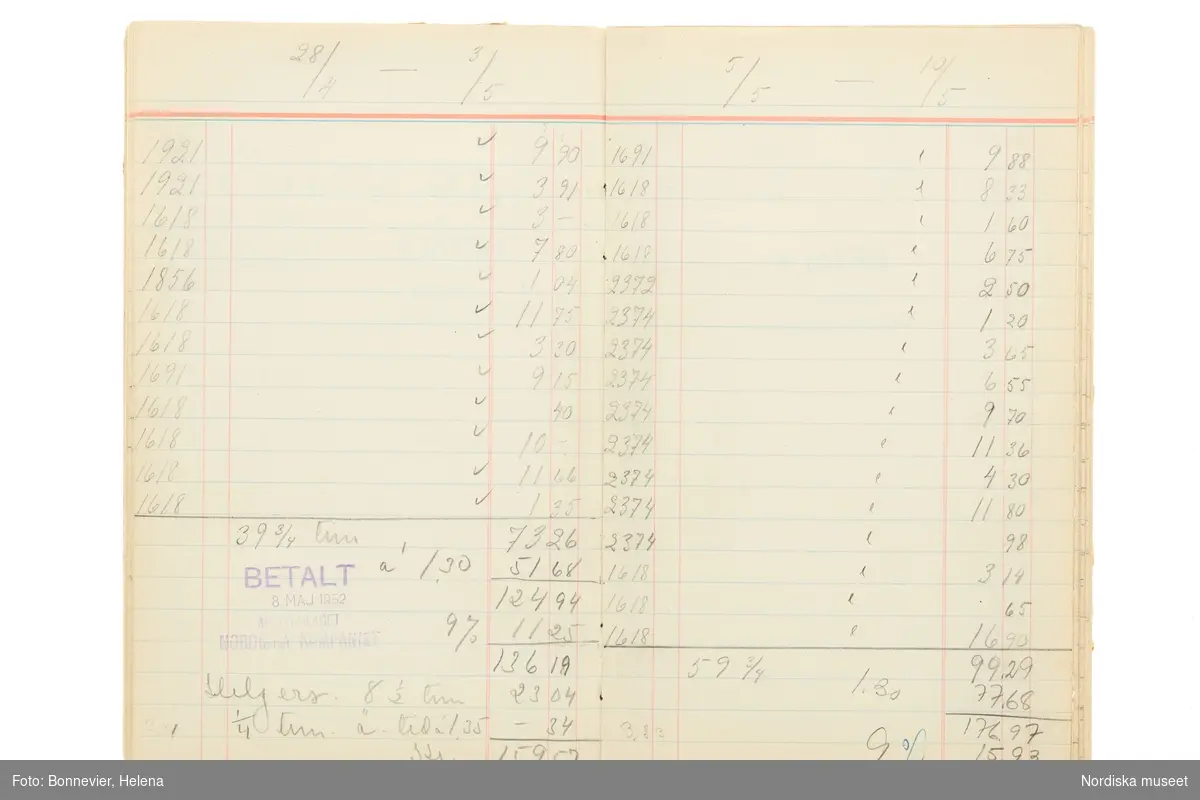 28/4 — 3/5
1921 9 90
1921 3 91
1618 3 –
1618 7 80
1856 1 04
1618 11 75
1618 3 30
1691 9 15
1618 40
1618 10 –
1618 11 66
1618 1 35
39 3/4 tim 73 26
à 1.30 51 68
124 94
BETALT
8 MAJ 1952
NORDISKA KOMPANIET
9% 11 25
136 19
Helgers. 8 1/2 tim 23 04
1/4 tim. à 1.35 – 34
Kr. 159 57
5/5 — 10/5
1691 9 88
1618 8 33
1618 1 60
1618 6 75
2372 2 50
2374 1 20
2374 3 65
2374 6 55
2374 9 70
2374 11 36
2374 4 30
2374 11 80
2374 98
1618 3 14
1618 65
1618 16 90
59 3/4 99.29
1.30 77.68
176.97
9% 15.93
Foto: Bonnevier, Helena
Nordiska museet